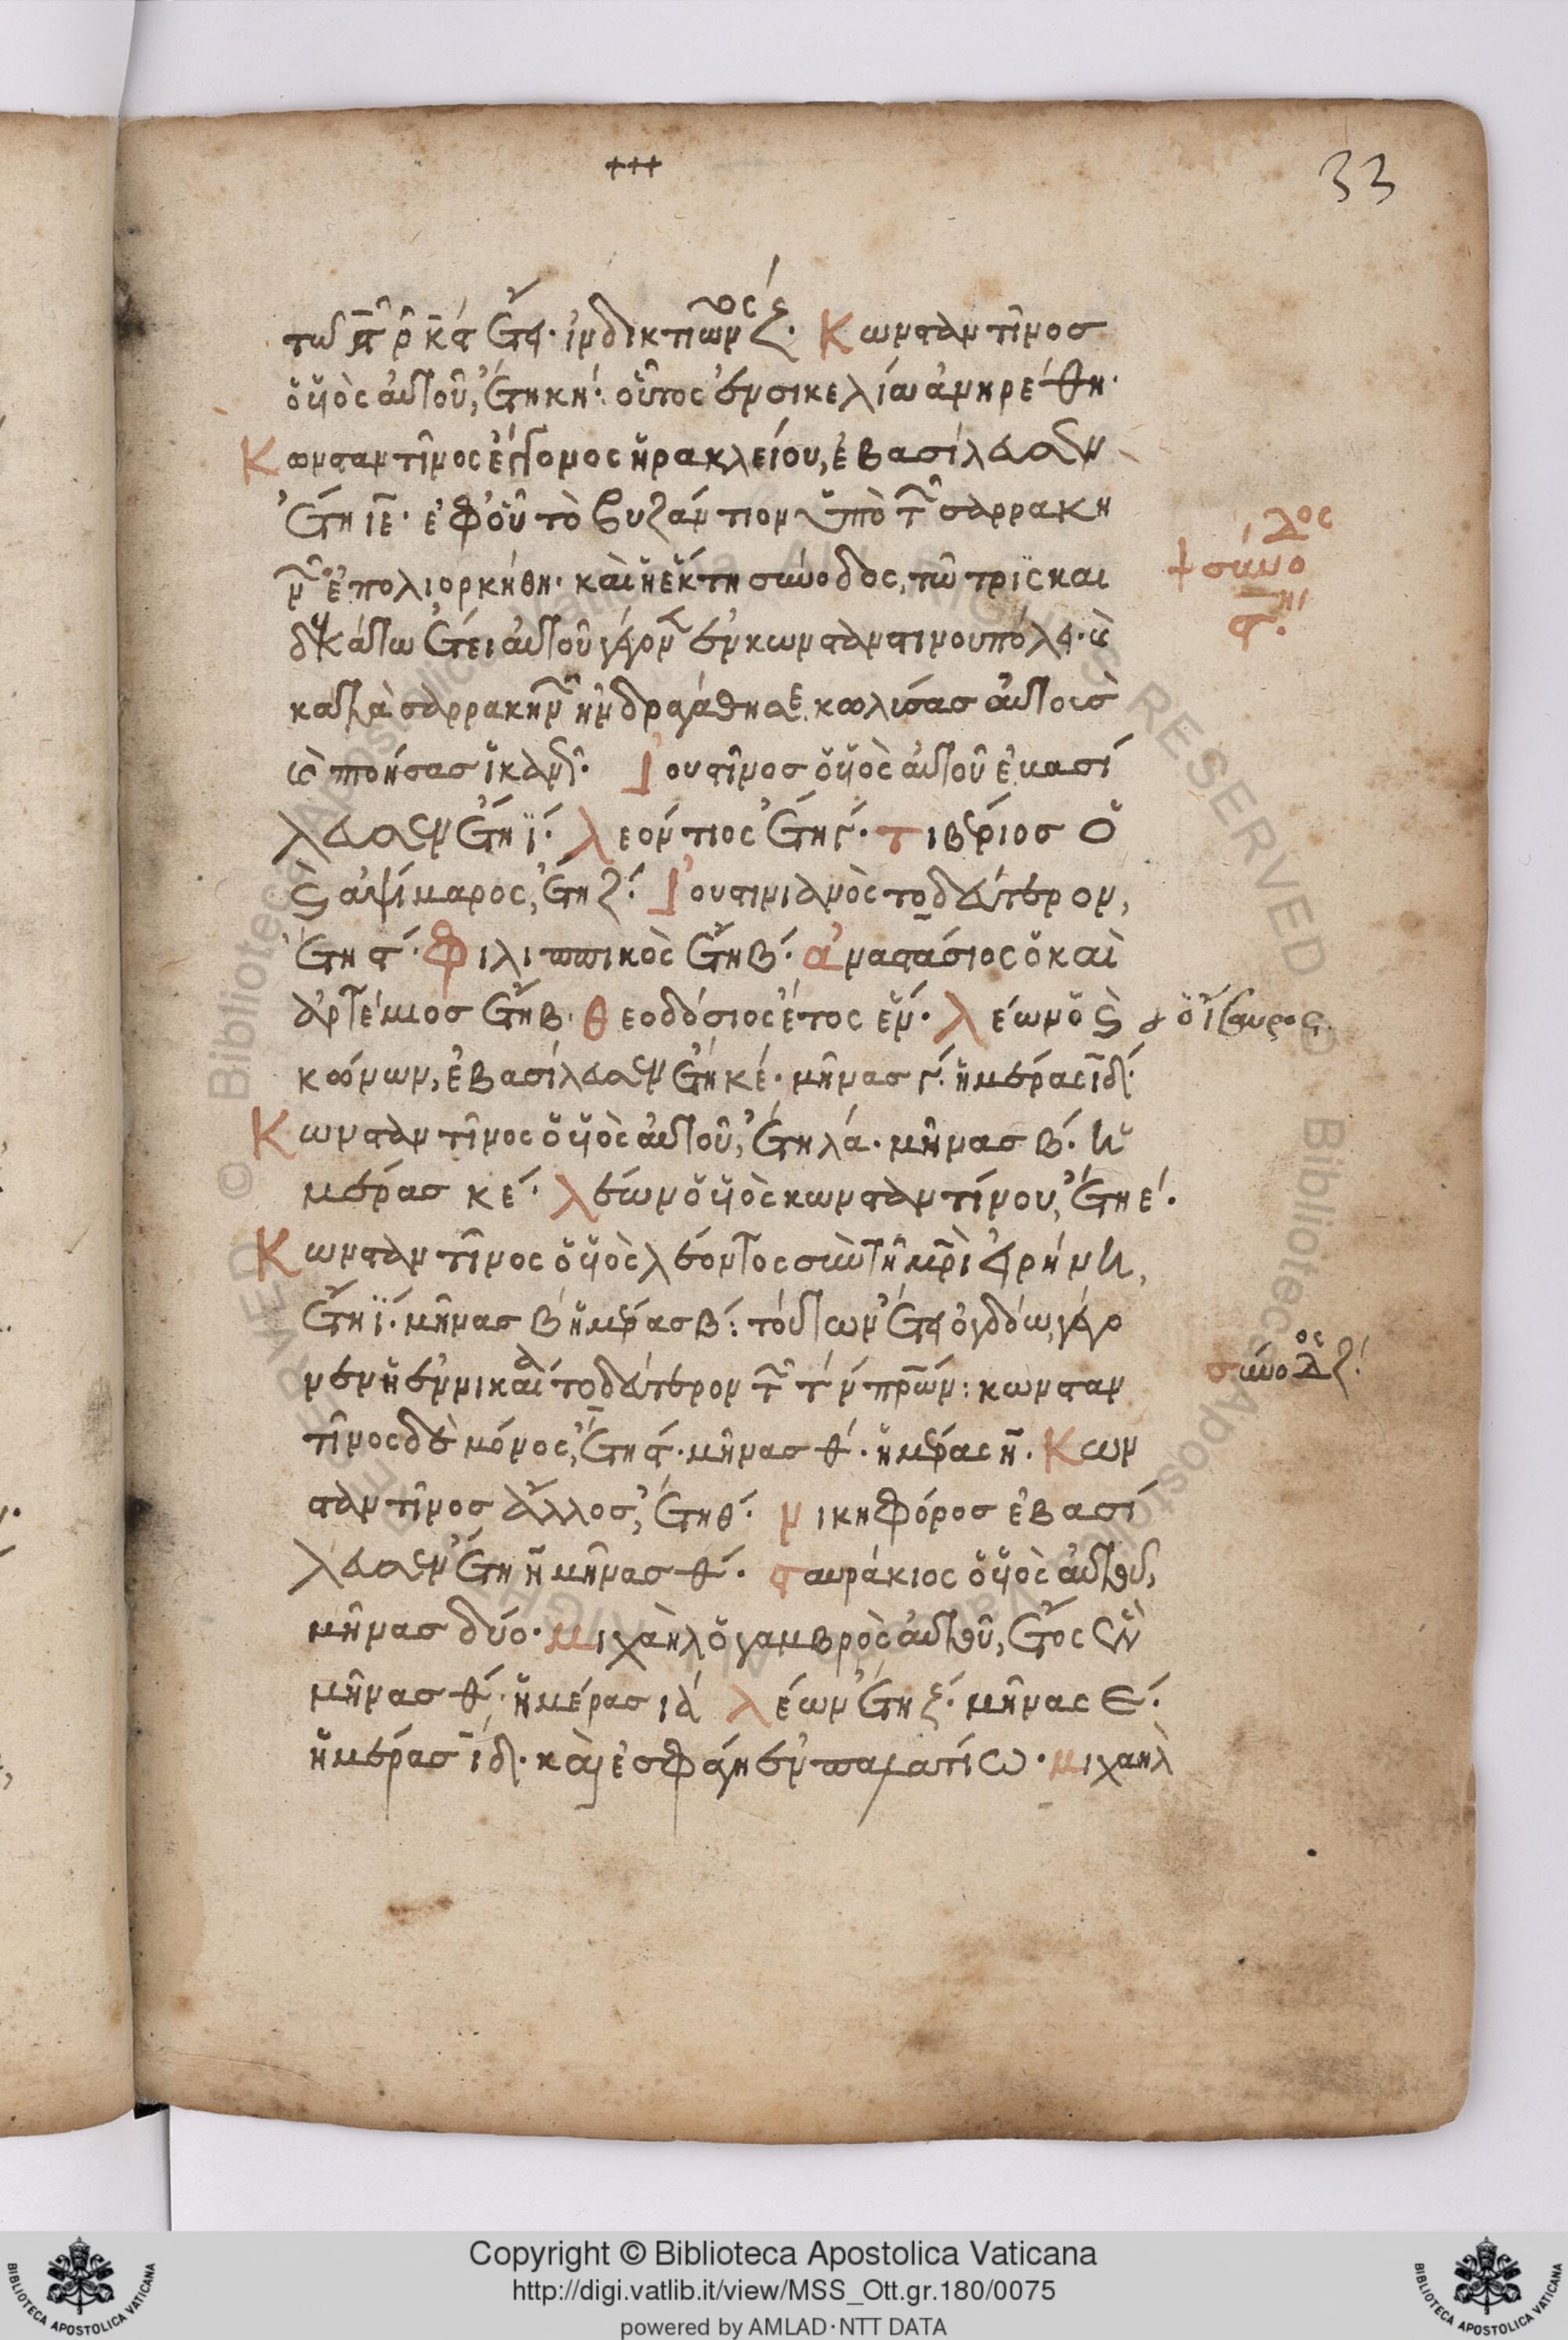 +++
33
τῶ ͵ϛ ρ κϛ ἔτει· ἰνδικτιῶνος ζ· Κωνσταντῖνος
ὁ υἱὸς αὐτοῦ, ἔτη κη· οὗτος ἐν σικελία ἀνηρέθη·
Κωνσταντῖνος ἔγγονος ἡρακλείου, ἐβασίλευσεν
ἔτη ιε· ἐφ' οὗ τὸ βυζάντιον ὑπὸ τῶν σαρρακη
νῶν ἐπολιορκήθη· καὶ ἡ ἕκτη σύνοδος, τῶ τρὶς και
δεκάτω ἔτει αὐτοῦ γέγονεν ἐν κωνσταντινουπόλει·
κατὰ σαρρακηνῶν ἠνδραγάθησε κωλύσας αὐτοὺς
ποιήσας ἱκανῶς· Ἰουστῖνος ὁ υἱὸς αὐτοῦ ἐβασί
λευσεν ἔτη ϊ· λεόντιος ἔτη γ· τιβέριος ὁ
καὶ ἀψίμαρος, ἔτη ζ· Ἰουστινιανὸς τὸ δεύτερον,
ἔτη ϛ· Φιλιππικὸς ἔτη β· ἀναστάσιος ὁ καὶ
ἀρτέμιος ἔτη β· θεοδόσιος ἔτος ἕν· λέων ὁ καὶ ὁ ἴσαυρος
κόνων, ἐβασίλευσεν ἔτη κε· μῆνας γ· ἡμέρας ιδ·
Κωνσταντῖνος ὁ υἱὸς αὐτοῦ, ἔτη λα· μῆνας β· ἡ
μέρας κε· λέων ὁ υἱὸς κωνσταντίνου, ἔτη ε·
Κωνσταντῖνος ὁ υἱὸς λέοντος σὺν τῆ μρὶ εἰρήνη,
ἔτη ϊ· μῆνας β ἡμέρας β: τούτων ἔτει ὀγδόω, γέγο
νεν ἡ ἐν νικαία τὸ δεύτερον τῶν τ͵ ν πρων: κωνσταν
τῖνος δὲ μόνος, ἔτη ϛ· μῆνας θ· ἡμέρας η· Κων
σταντῖνος ἄλλος, ἔτη θ· νικηφόρος ἐβασί
λευσεν ἔτη η μῆνας θ· σταυράκιος ὁ υἱὸς αὐτοῦ,
μῆνας δύο· μιχαὴλ ὁ γαμβρὸς αὐτοῦ, ἔτος ἓν
μῆνας θ· ἡμέρας ια λέων ἔτη ζ· μῆνας ε·
ἡμέρας ιδ· καὶ ἐσφάγη ἐν παλατίω· μιχαὴλ
σύνοδος
ϛη
σύνοδος ζ
Copyright © Biblioteca Apostolica Vaticana
http://digi.vatlib.it/view/MSS_Ott.gr.180/0075
powered by AMLAD·NTT DATA
BIBLIOTECA APOSTOLICA VATICANA
BIBLIOTECA APOSTOLICA VATICANA